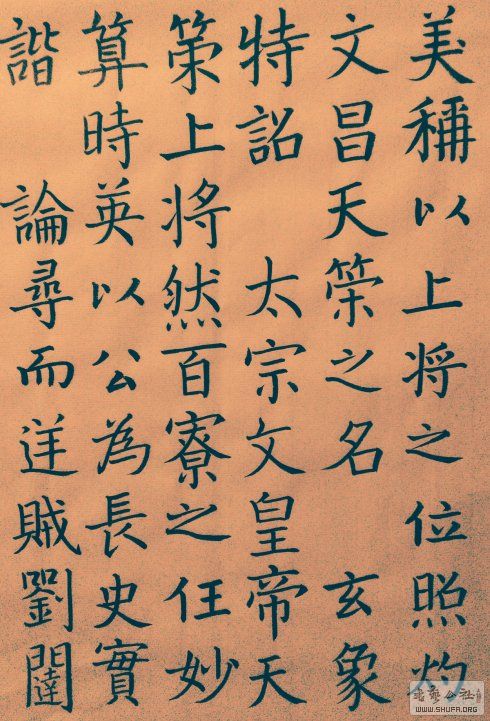 美稱以上將之位照灼
文昌天策之名 玄象
特詔 太宗文皇帝天
策上將然百寮之任妙
算時英以公為長史實
諧 論尋而逆賊劉闥
WWW.SHUFA.ORG